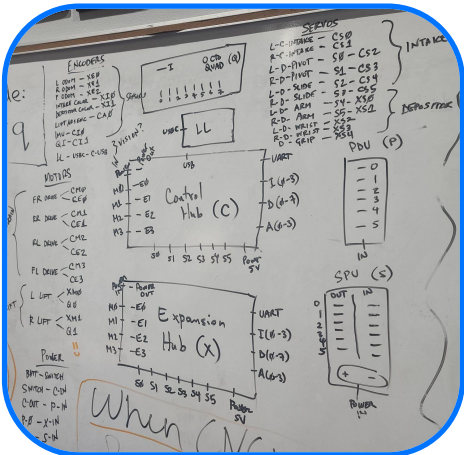 ENCODERS
L ODOM - XE0
R ODOM - XE1
P ODOM - XE2
INTAKE COLOR - XI0
DEPOSITOR COLOR - XI1
LIMIT INTAKE - CA0
IMU - CI0
QI - CI1
LL - USBC - C-USB
MOTORS
FR DRIVE
CM0
CE0
RR DRIVE
CM1
CE1
RL DRIVE
CM2
CE2
FL DRIVE
CM3
CE3
L LIFT
XM0
Q0
R LIFT
XM1
Q1
POWER
BATT - SWITCH
SWITCH - C-IN
C-OUT - P-IN
P-0 - X-IN
S-IN
- I
OCTO
QUAD (Q)
0 1 2 3 4 5 6 7
VISION?
USBC
LL
USB
M0
M1
M2
M3
- E0
- E1
- E2
- E3
Control
Hub (C)
UART
I(0-3)
D(0-7)
A(0-3)
S0 S1 S2 S3 S4 S5 POWER
5V
POWER
IN
- POWER
OUT
M0
M1
M2
M3
- E0
- E1
- E2
- E3
Expansion
Hub (X)
UART
I(0-3)
D(0-7)
A(0-3)
S0 S1 S2 S3 S4 S5 POWER
5V
When CNC
SERVOS
L-C-INTAKE - CS0
R-C-INTAKE - CS1
L-D-PIVOT - S0 - CS2
R-D-PIVOT - S1 - CS3
L-D-SLIDE - S2 - CS4
R-D-SLIDE - S3 - CS5
L-D-ARM - S4 - XS0
R-D-ARM - S5 - XS1
L-D-WRIST - XS2
R-D-WRIST - XS3
D-GRIP - XS4
INTAKE
DEPOSITOR
PDU (P)
- 0
- 1
- 2
- 3
- 4
- 5
IN
SPU (S)
OUT IN
0
1
2
3
4
5
+ -
POWER
IN